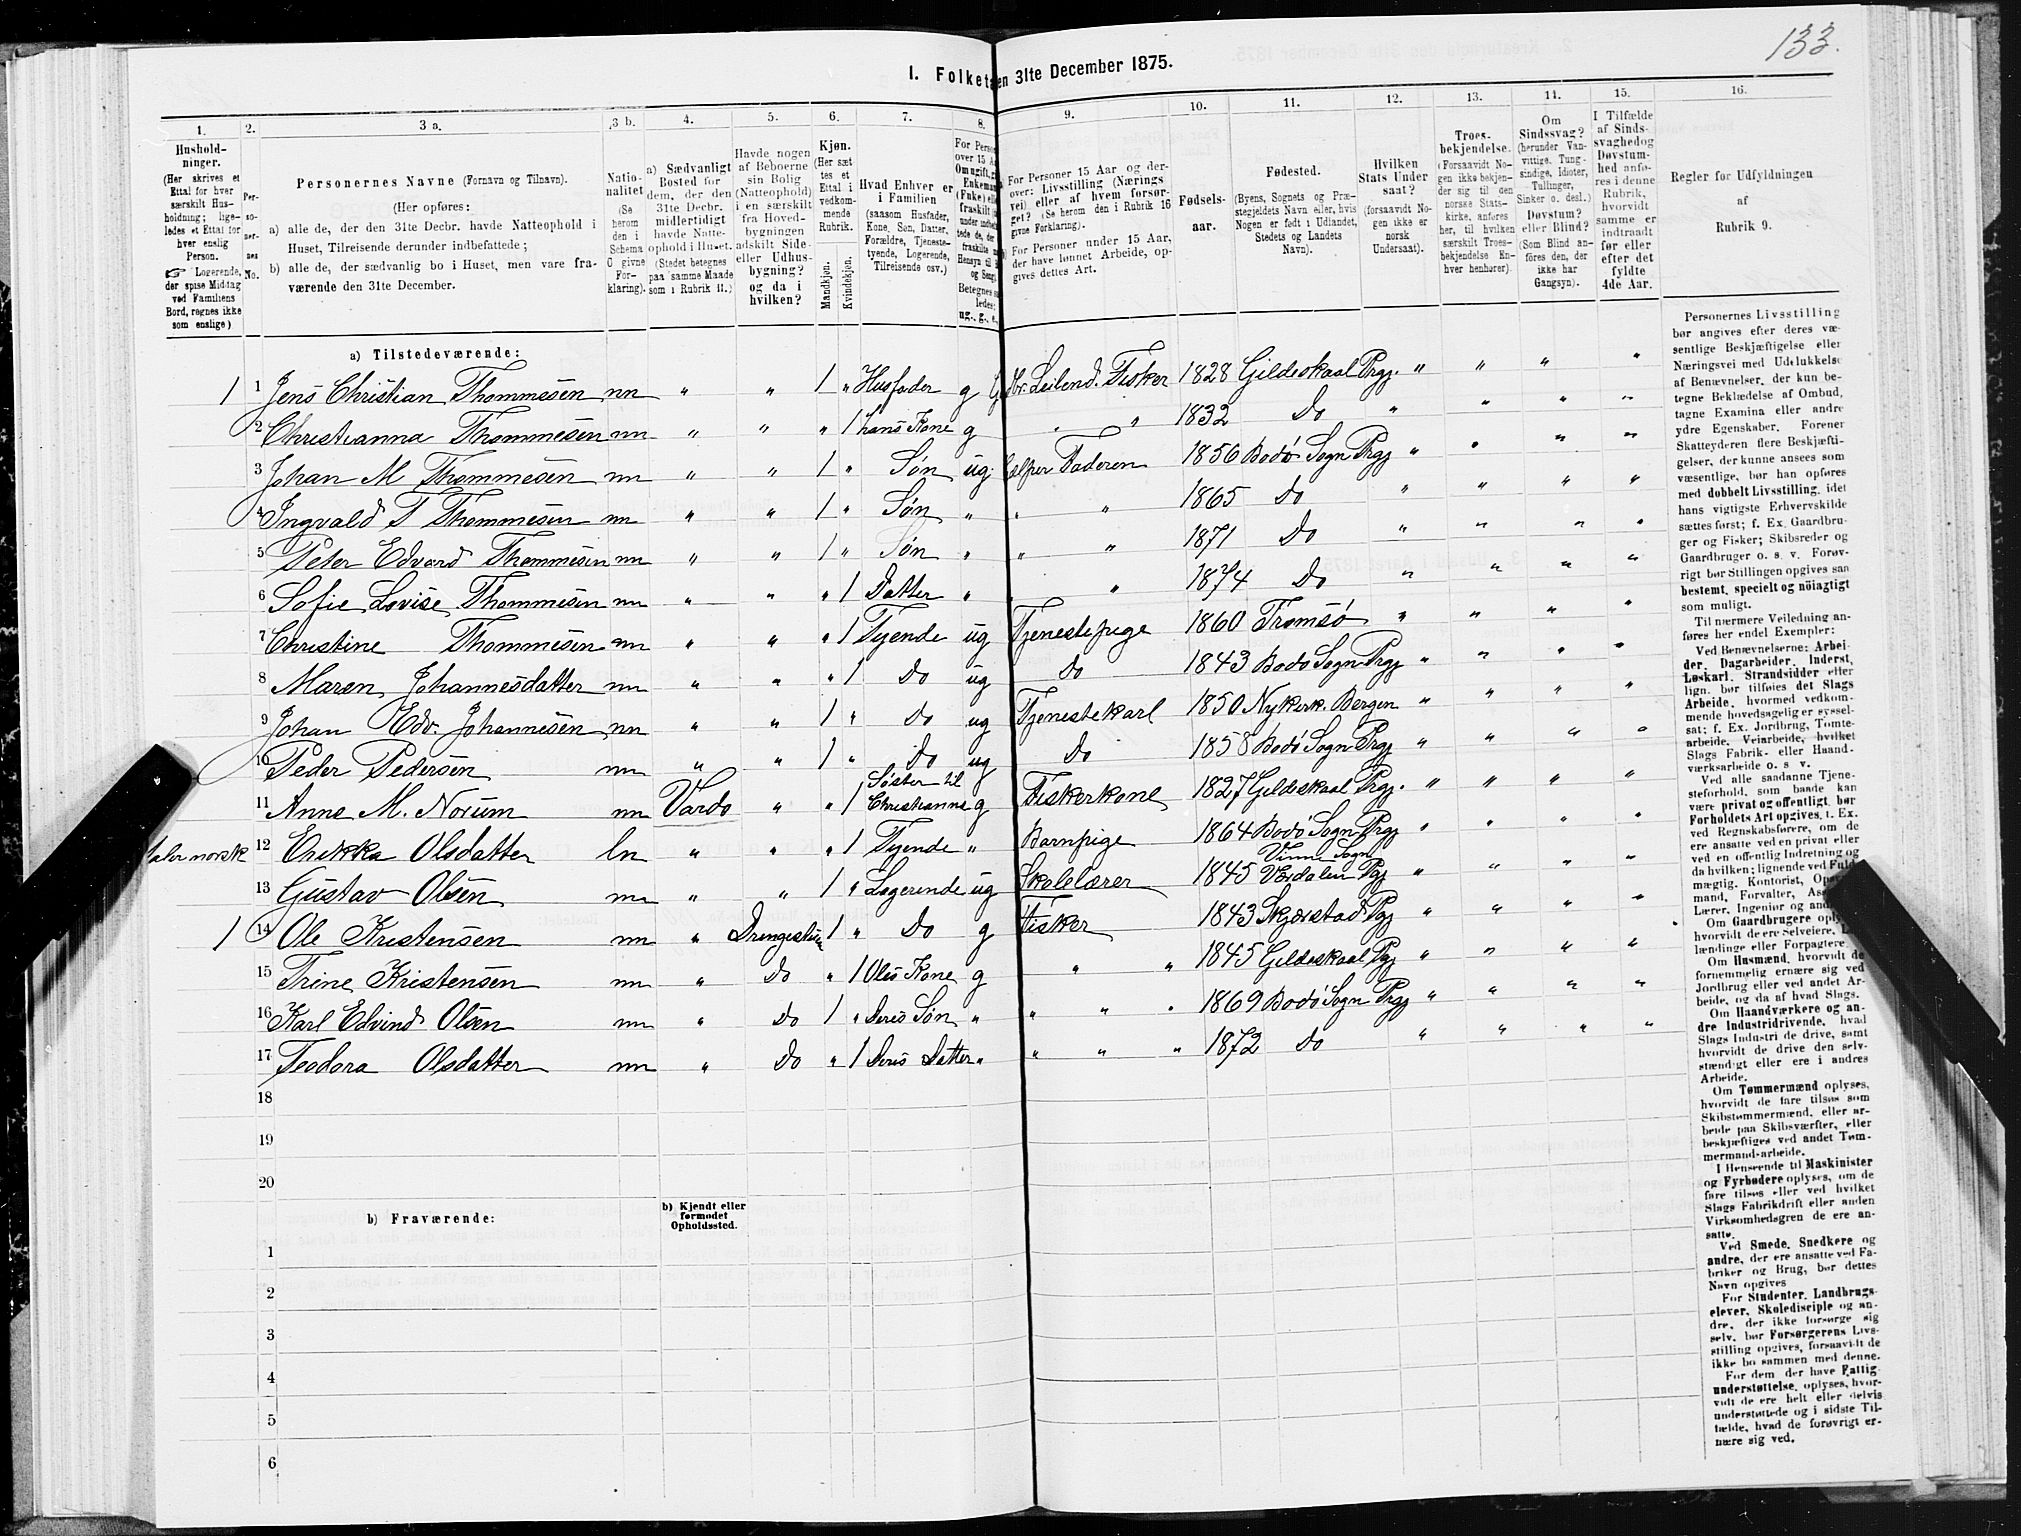 133.
I. Folketa en 31te December 1875.
1. 2. 3 a. 3 b. 4. 5. 6. 7. 8. 9. 10. 11. 12. 13. 14. 15. 16.
Hushold-
ninger.
(Her skrives et
Ettal for hver
særskilt Hus-
holdning; lige-
ledes et Ettal for
hver enslig
Person.
☞ Logerende,
der spise Middag
ved Familiens
Bord, regnes ikke
som enslige)
Per-
so-
ner-
nes
No.
Personernes Navne (Fornavn og Tilnavn).
(Her opføres:
a) alle de, der den 31te Decbr. havde Natteophold i
Huset, Tilreisende derunder indbefattede;
b) alle de, der sædvanlig bo i Huset, men vare fra-
værende den 31te December.
Natio-
nalitet
(Se
herom
den i
Schema
O givne
For-
klaring).
a) Sædvanligt
Bosted for
dem, der den
31te Decbr.
midlertidigt
havde Natte-
ophold i Huset.
(Stedet betegnes
paa samme Maade
som i Rubrik 11.)
Havde nogen
af Beboerne
sin Bolig
(Natteophold)
i en særskilt
fra Hoved-
bygningen
adskilt Side-
eller Udhus-
bygning?
og da i
hvilken?
Kjøn.
(Her sæt
tes et
Ettal i
vedkom-
mende
Rubrik.
Mandkjøn.
Kvindekjøn.
Hvad Enhver er
i Familien
(saasom Husfader,
Kone, Søn, Datter,
Forældre, Tjeneste-
tyende, Logerende,
Tilreisende osv.)
For Person
over 15 A
Om ugift, gi
Enkeman
(Enke) elle
fraskilt
Betegnes s
ledes:
ug., g., e.,
For Personer 15 Aar og der-
over: Livsstilling (Nærings
vei) eller af hvem forsør-
get? (Se herom den i Rubrik 16
givne Forklaring).
For Personer under 15 Aar,
der have lønnet Arbeide, op-
gives dettes Art.
Fødsels-
aar.
Fødested.
(Byens, Sognets og Præ-
stegjeldets Navn eller, hvis
Nogen er født i Udlandet,
Stedets og Landets
Navn).
Hvilken
Stats Under
saat?
(forsaavidt No-
gen ikke er
norsk
Undersaat).
Troes-
bekjendelse.
(Forsaavidt No-
gen ikke bekjen-
der sig til den
norske Stats-
kirke, anføres
her, til hvilken
særskilt Troes-
bekjendelse En-
hver henhører).
Om
Sindssvag?
(herunder Van-
vittige, Tung-
sindige, Idioter,
Tullinger,
Sinker o. desl.)
Døvstum?
eller Blind?
(Som Blind an-
føres den, der
ikke har
Gangsyn).
I Tilfælde
af Sinds-
svaghed og
Døvstum-
hed anfø-
res i denne
Rubrik,
hvorvidt
samme er
indtraadt
før eller
efter det
fyldte
4de Aar.
Regler for Udfyldningen
af
Rubrik 9.
a) Tilstedeværende:
1 1 Jens Christian Thommesen nn " " 1 " Husfader g Leilend. Fisker 1828 Gildeskaal Prgj. " " " "
2 Christianna Thommesen nn " " " 1 hans Kone g " " 1832 Do " " " "
3 Johan M Thommesen nn " " 1 " Søn ug. Faderen 1856 Bodø Sogn Prgj " " " "
4 Ingvald T Thommesen nn " " 1 " Søn " " " 1865 Do " " " "
5 Peter Edvard Thommesen nn " " 1 " Søn " " " 1871 Do " " " "
6 Sofie Lovise Thommesen nn " " " 1 Datter " " " 1874 Do " " " "
7 Christine Thommesen nn " " " 1 Tyende ug Tjenestepige 1860 Tromsø " " " "
8 Maren Johannesdatter nn " " " 1 Do ug Do 1843 Bodø Sogn Prgj " " " "
9 Johan Edv. Johannesen nn " " 1 " Do ug Tjenestekarl 1850 Nykerk. Bergen " " " "
10 Peder Pedersen nn " " 1 " Do ug Do 1858 Bodø Sogn Prgj " " " "
11 Anne M. Norum nn Vardø " " 1 Søster til Christianna g Fiskerkone 1827 Gildeskaal Prgj. " " " "
taler norsk 12 Erikka Olsdatter ln " " " 1 Tyende " Barnpige 1864 Bodø Sogn Prgj " " " "
13 Gustav Olsen nn " " 1 " Logerende ug Skolelærer 1845 Vinne Sogn Værdalen Pgj " " " "
1 14 Ole Kristensen nn " Drengestuen 1 " Do g Fisker 1843 Skjerstad Pgj " " " "
15 Trine Kristensen nn " Do " 1 Oles Kone g " " 1845 Gildeskaal Pgj " " " "
16 Karl Edvind Olsen nn " Do 1 " Deres Søn " " " " 1869 Bodø Sogn Prgj " " " "
17 Teodora Olsdatter nn " Do " 1 Deres Datter " " " " 1872 Do " " " "
18
19
20
b) Fraværende:
b) Kjendt eller
formodet
Opholdssted.
1
2
3
4
5
6
Personernes Livsstilling
bør angives efter deres væ-
sentlige Beskjæftigelse eller
Næringsvei med Udelukkelse
af Benævnelser, der kun be-
tegne Beklædelse af Ombud,
tagne Examina eller andre
ydre Egenskaber. Forener
Skatteyderen flere Beskjæfti-
gelser, der kunne ansees som
væsentlige, bør han opføres
med dobbelt Livsstilling, idet
hans vigtigste Erhvervskilde
sættes først; f. Ex. Gaardbru-
ger og Fisker; Skibsreder og
Gaardbruger o. s. v. Forøv-
rigt bør Stillingen opgives saa
bestemt, specielt og nöiagtigt
som muligt.
Til nærmere Veiledning an-
føres her endel Exempler:
Ved Benævnelserne: Arbei-
der, Dagarbeider, Inderst,
Løskarl, Strandsidder eller
lign. bør tilføies det Slags
Arbeide, hvormed vedkom-
mende hovedsagelig er syssel-
sat; f. Ex. Jordbrug, Tomte-
arbeide, Veiarbeide, hvilket
Slags Fabrik- eller Haand-
værksarbeide o. s. v.
Ved alle saadanne Tjene-
steforhold, som baade kan
være privat og offentligt, bør
Forholdets Art opgives, f. Ex.
ved Regnskabsførere, om de
ere ansatte ved en privat eller
ved en offentlig Indretning og
da hvilken; lignende ved Fuld-
mægtig, Kontorist,
mand, Forvalter,
Lærer, Ingeniør og
Om Gaardbrugere
hvorvidt de ere Selveiere,
lændinge eller Forpagtere.
Om Husmænd, hvorvidt de
fornemmelig ernære sig ved
Jordbrug eller ved andet Ar-
beide, og da af hvad Slags.
Om Haandværkere og an-
dre Industridrivende, hvad
Slags Industri de drive, samt
hvorvidt de drive den selv-
stændigt eller ere i andres
Arbeide.
Om Tømmermænd oplyses,
hvorvidt de fare tilsøs som
Skibstømmermænd, eller ar-
beide paa Skibsværfter, eller
beskjæftiges ved andet Tøm-
mermandsarbeide.
I Henseende til Maskinister
og Fyrbødere oplyses, om de
fare tilsøs eller ved hvilket
Slags Fabrikdrift eller anden
Virksomhedsgren de ere an-
satte.
Ved Smede, Snedkere og
andre, der ere ansatte ved Fa-
briker og Brug, bør dettes
Navn opgives
For Studenter, Landbrugs-
elever, Skoledisciple og an-
dre, der ikke forsørge sig
selv, bør Forsørgerens Livs-
stilling opgives, forsaavidt de
ikke bo sammen med denne.
For dem der have Fattig-
understøttelse, oplyses, hvor-
vidt de ere helt eller delvis
understøttede og i sidste Til-
fælde, hvad de forøvrigt er-
nære sig ved.